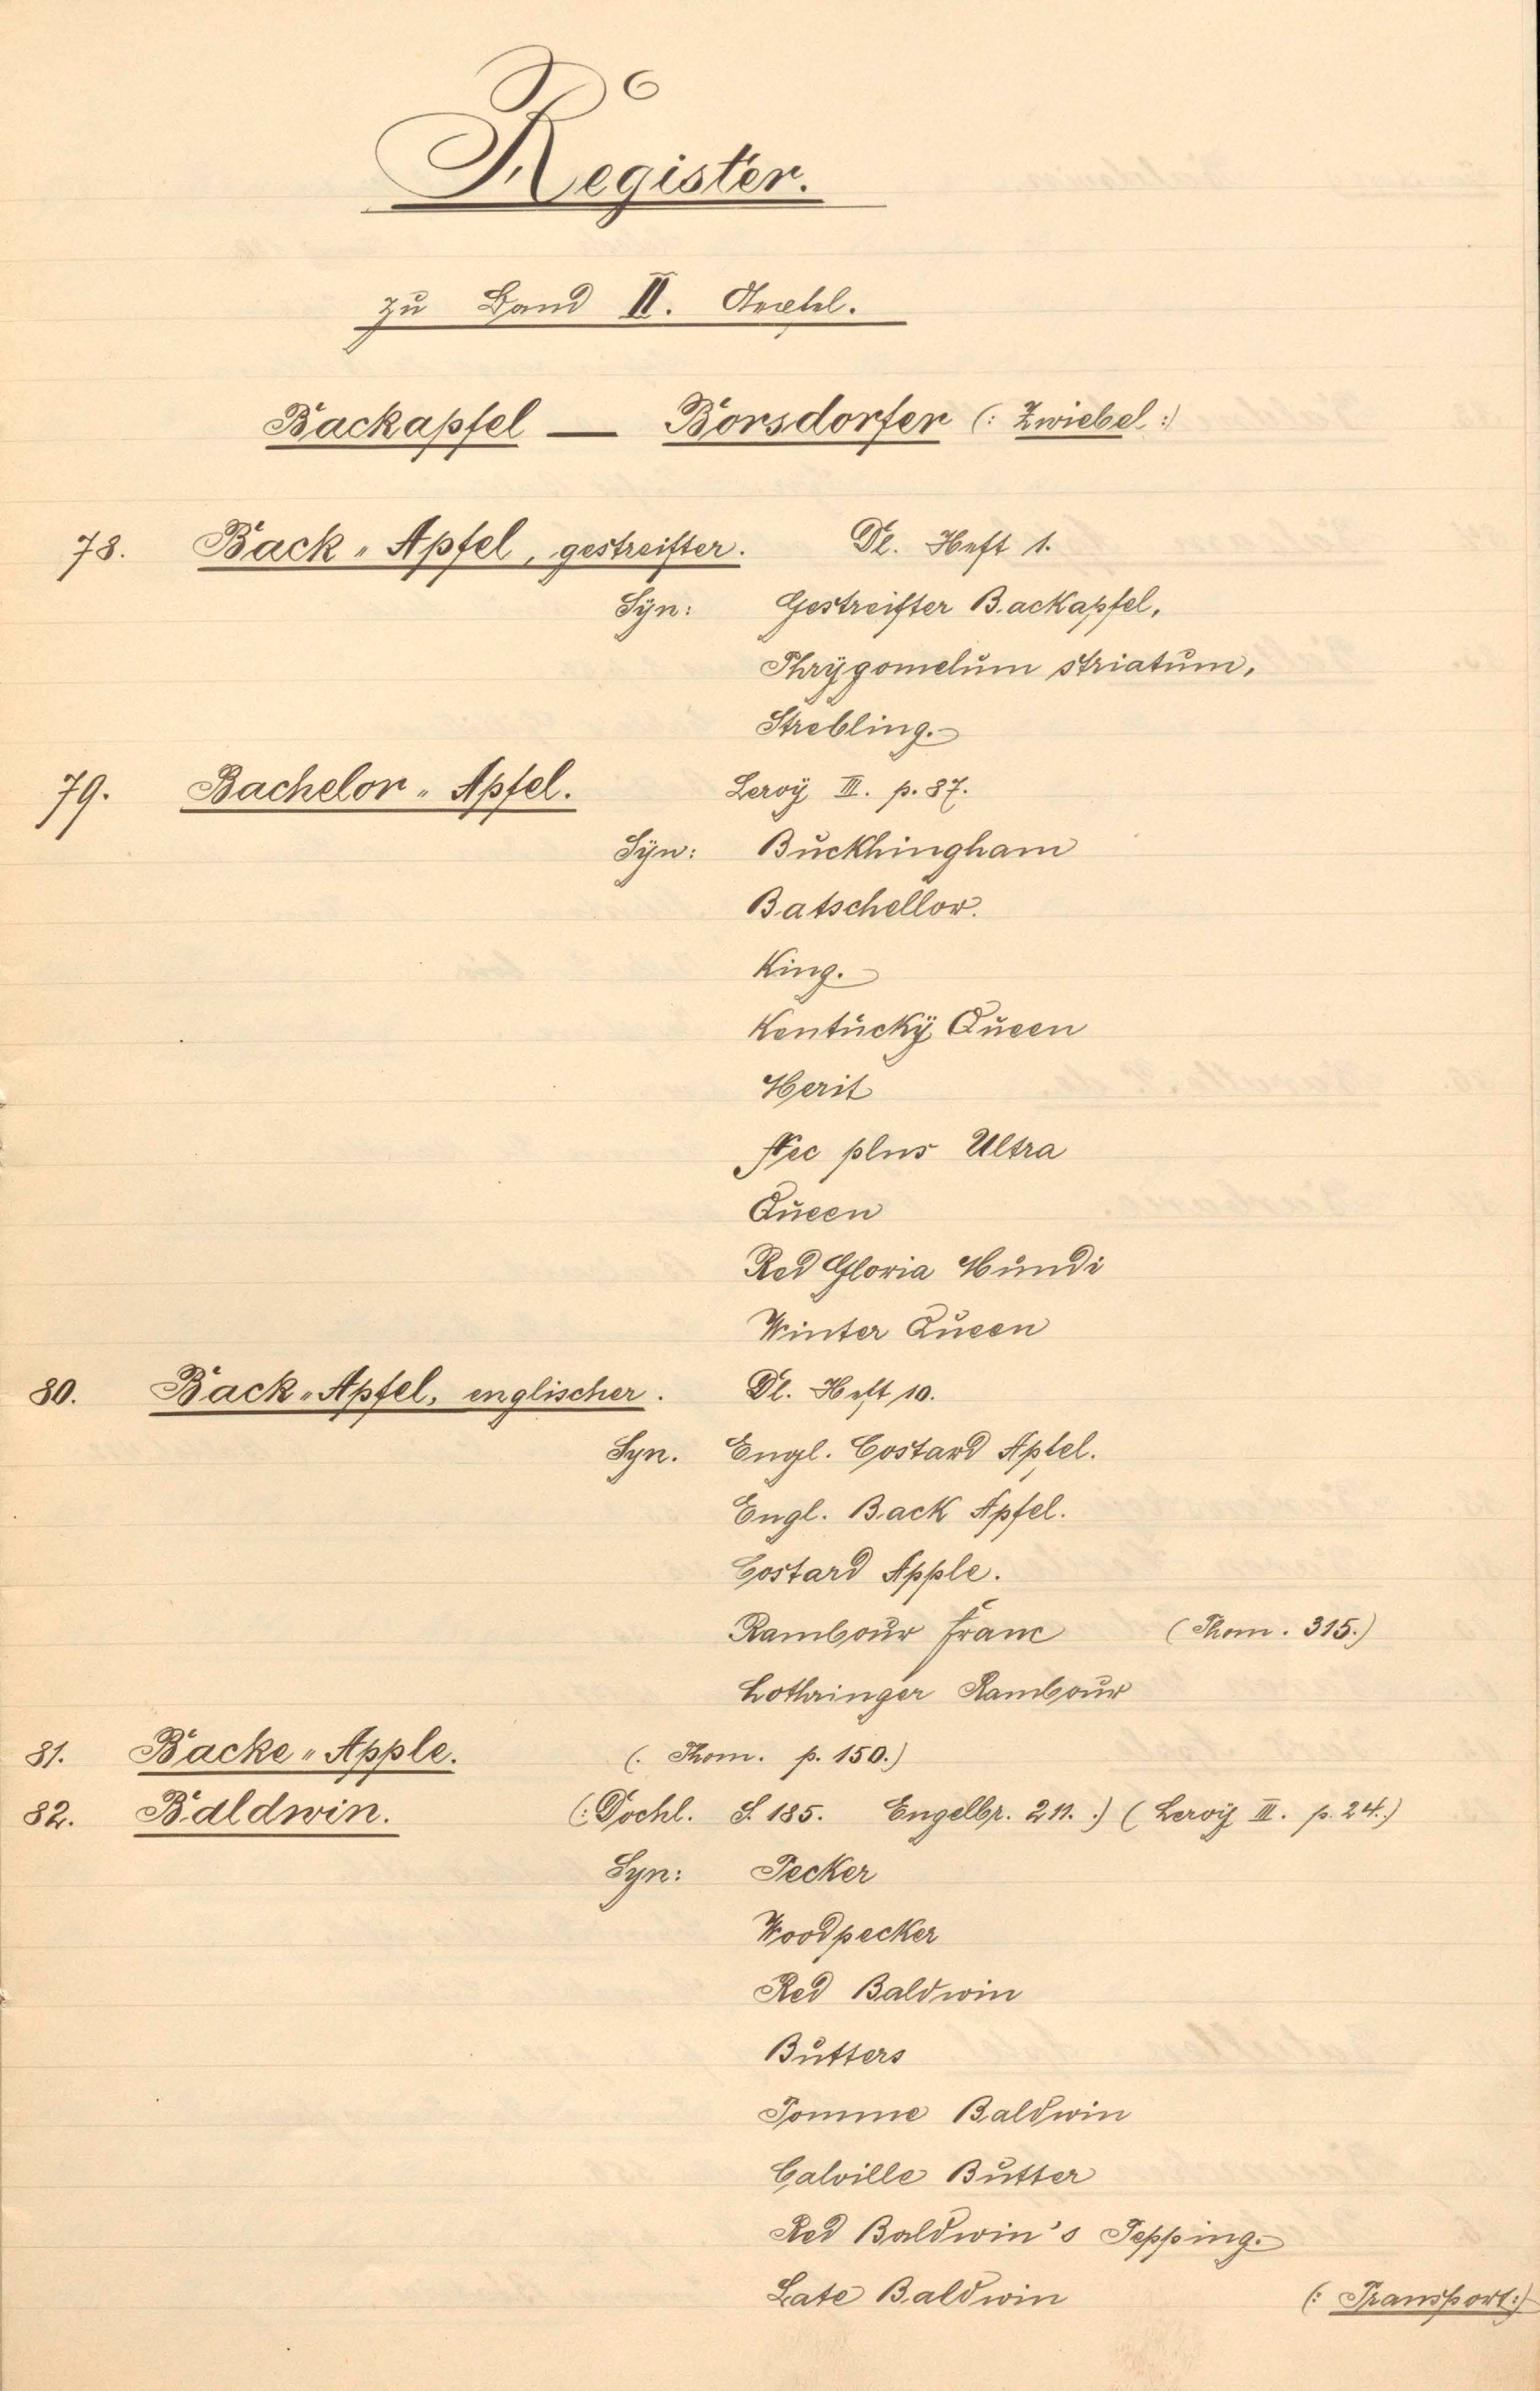 Register.
zu Band II. Aepfel.
Backapfel — Borsdorfer (: Zwiebel :)
78. Back „ Apfel, gestreifter. Dl. Heft 1.
Syn: Gestreifter Backapfel,
Phrygomelum striatum,
Strebling.
79. Bachelor „ Apfel. Leroy III. p. 87.
Syn: Buckhingham
Batschellor.
King.
Kentucky Queen
Merit
Nec plus Ultra
Queen
Red Gloria Mundi
Winter Queen
80. Back „ Apfel, englischer. Dl. Heft 10.
Syn. Engl. Costard Apfel.
Engl. Back Apfel.
Costard Apple.
Rambour franc (Thom. 315.)
Lothringer Rambour
81. Backe „ Apple. (. Thom. p. 150.)
82. Baldwin. (: Dochl. S. 185. Engelbr. 211. .) ( Leroy III. p. 24.)
Syn: Pecker
Woodpecker
Red Baldwin
Butters
Pomme Baldwin
Calville Butter
Red Baldwin's Pepping.
Late Baldwin (: Transport :)